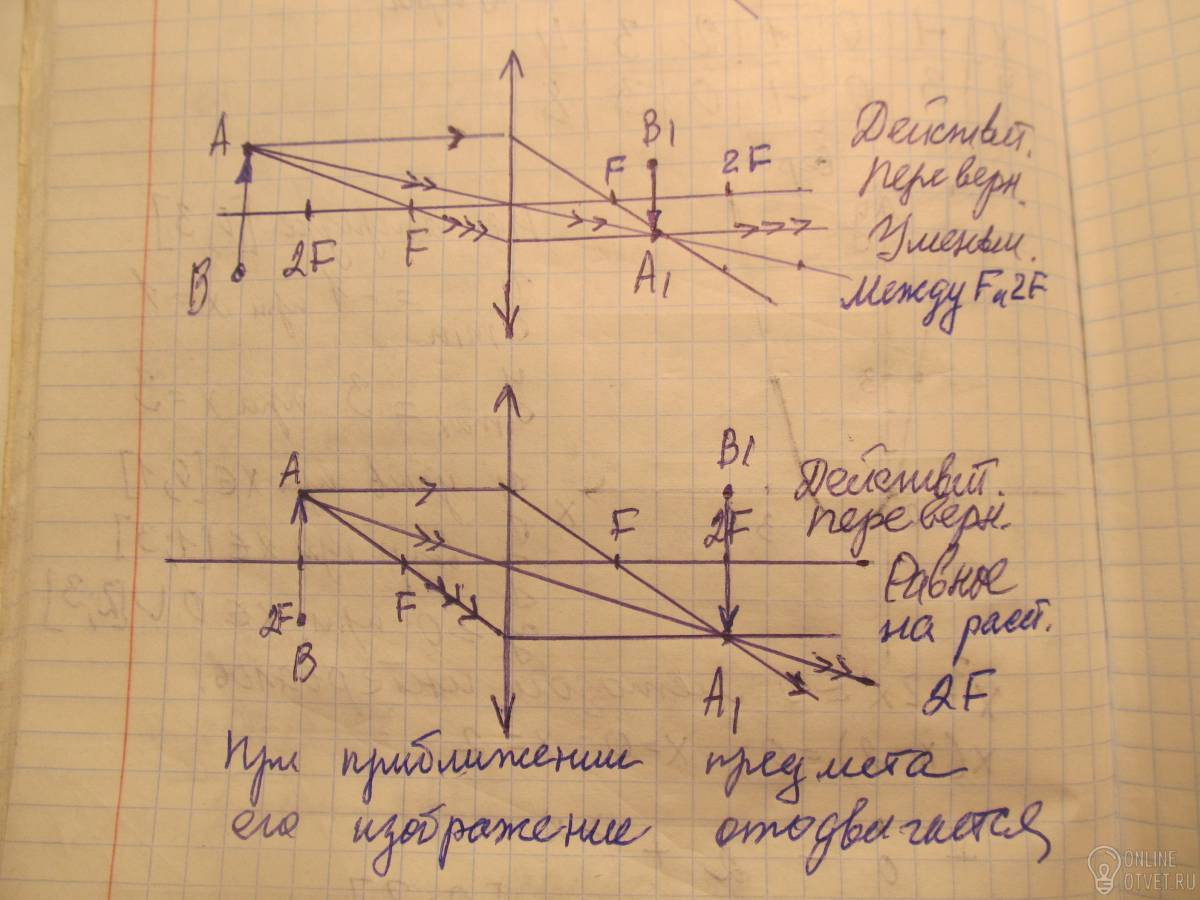 A
B
2F
F
F
B1
2F
A1
Действит.
переверн.
Уменьш.
Между F и 2F
A
2F
B
F
F
B1
2F
A1
Действит.
переверн.
Равное
на расст.
2F
При приближении предмета
его изображение отодвигается
ONLINE
OTVET.RU